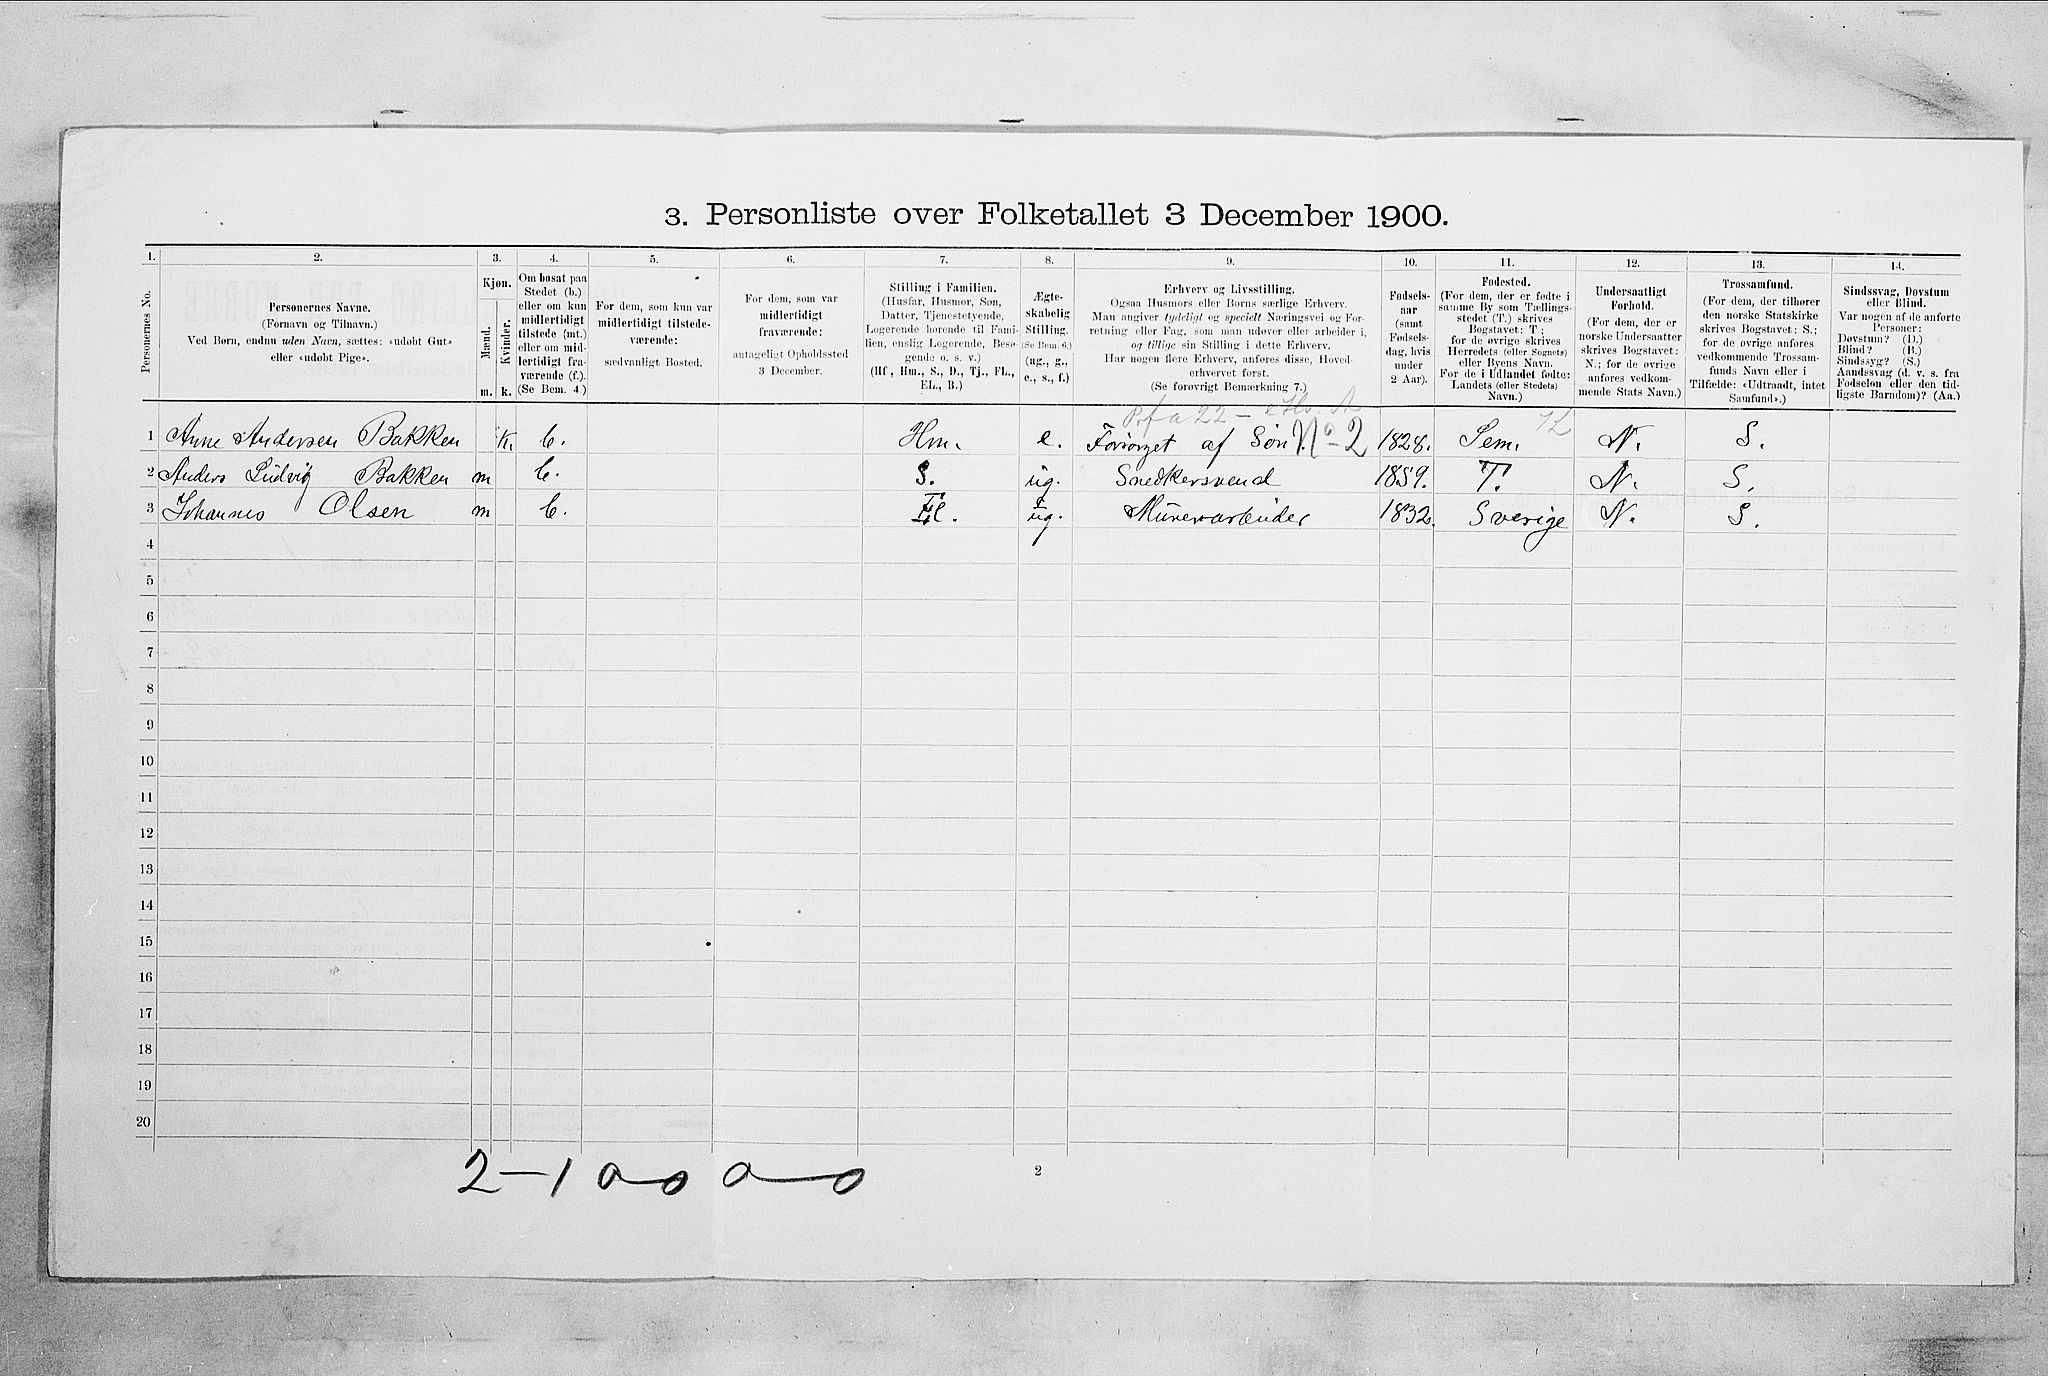 3. Personliste over Folketallet 3 December 1900.
1. 2. 3. 4. 5. 6. 7. 8. 9. 10. 11. 12. 13. 14.
Personernes No.
Personernes Navne.
(Fornavn og Tilnavn.)
Ved Børn, endnu uden Navn, sættes: «udøbt Gut»
eller «udøbt Pige».
Kjøn.
Mænd.
Kvinder.
m. k.
Om bosat paa
Stedet (b.)
eller om kun
midlertidigt
tilstede (mt.)
eller om mid-
lertidigt fra-
værende (f.).
(Se Bem. 4.)
For dem, som kun var
midlertidigt tilstede-
værende:
sædvanligt Bosted.
For dem, som var
midlertidigt
fraværende:
antageligt Opholdssted
3 December.
Stilling i Familien.
(Husfar, Husmor, Søn,
Datter, Tjenestetyende,
Logerende hørende til Fami-
lien, enslig Logerende, Besø-
gende o. s. v.)
(Hf., Hm., S., D., Tj., FL.,
EL., B.)
Ægte-
skabelig
Stilling.
(Se Bem. 6.)
(ug., g.,
e., s., f.)
Erhverv og Livsstilling.
Ogsaa Husmors eller Børns særlige Erhverv.
Man angiver tydeligt og specielt Næringsvei og For-
retning eller Fag, som man udøver eller arbeider i,
og tillige sin Stilling i dette Erhverv.
Har nogen flere Erhverv, anføres disse, Hoved-
erhvervet først.
(Se forøvrigt Bemærkning 7.)
Fødsels-
aar
(samt
Fødsels-
dag, hvis
under
2 Aar).
Fødested.
(For dem, der er fødte i
samme By som Tællings-
stedet (T.) skrives
Bogstavet: T;
for de øvrige skrives
Herredets (eller Sognets)
eller Byens Navn.
For de i Udlandet fødte:
Landets (eller Stedets)
Navn.)
Undersaatligt
Forhold.
(For dem, der er
norske Undersaatter
skrives Bogstavet:
N.; for de øvrige
anføres vedkom-
mende Stats Navn.)
Trossamfund.
(For dem, der tilhører
den norske Statskirke
skrives Bogstavet: S.;
for de øvrige anføres
vedkommende Trossam-
funds Navn eller i
Tilfælde: «Udtraadt, intet
Samfund».)
Sindssvag, Døvstum
eller Blind.
Var nogen af de anførte
Personer:
Døvstum? (D.)
Blind? (B.)
Sindssyg? (S.)
Aandssvag (d. v. s. fra
Fødselen eller den tid-
ligste Barndom)? (Aa.)
1 Anne Andersen Bakken k. b. Hm. e. Forsørget af Søn No 2 1828. Sem. N. S.
2 Anders Ludvig Bakken m b. S. ug. Snedkersvend 1859. T. N. S.
3 Johannes Olsen m b. Fl. ug. Murerarbeider 1832. Sverige N. S.
4
5
6
7
8
9
10
11
12
13
14
15
16
17
18
19
20
2-1 0 0 0 0
2